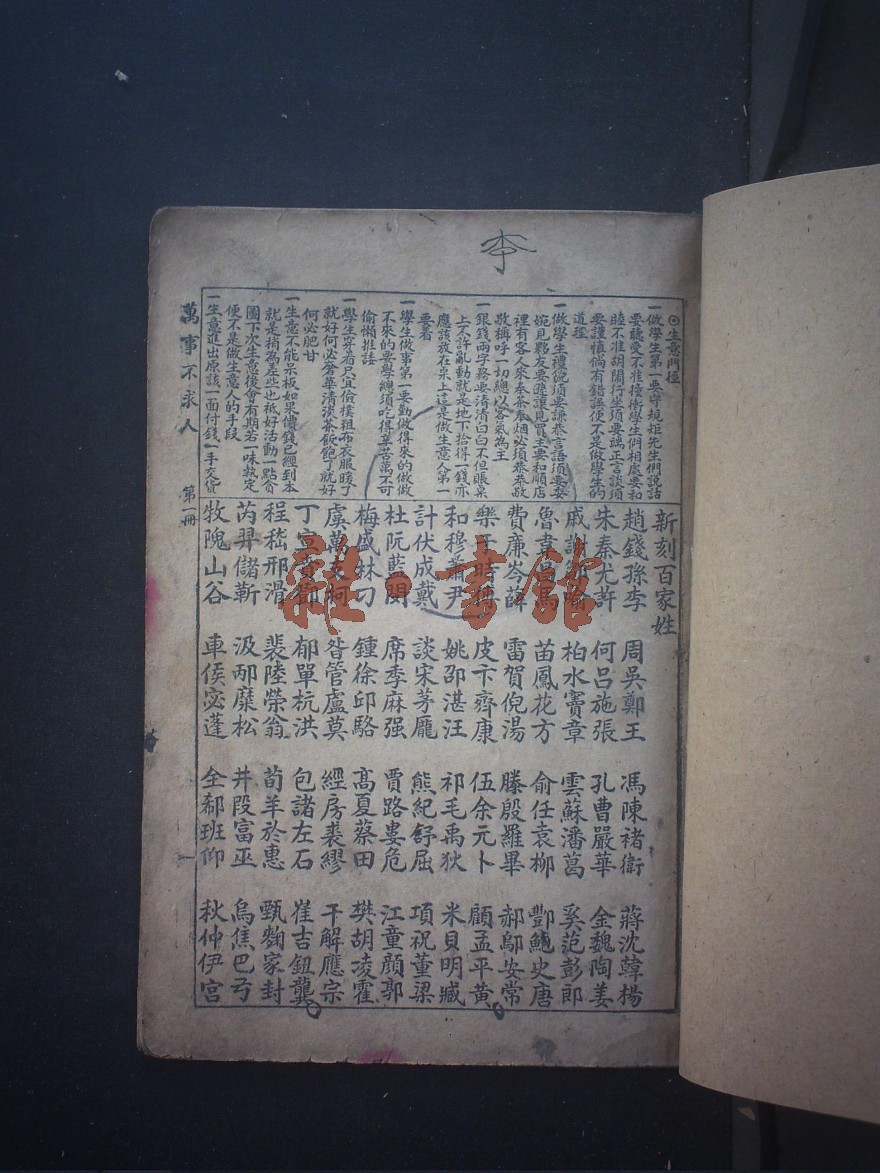 ◎生意門徑
一做學生第一要守規矩先生們說話
要聽受不准
學生們相處要和
睦不准胡鬧行坐須要端正言談須
要謹慎倘有錯誤便不是做學生的
道理
一做學生禮貌須要謙恭言語須要委
婉見夥友要遜讓見買主要和順店
裡有客人來奉茶奉烟必須恭恭敬
敬稱呼一切總以客氣為主
一銀錢兩字務要清清白白不但賬桌
上不許亂動就是地下拾得一錢亦
應該放在桌上這是做生意人第一
要着
一學生做事第一要勤做得來的做做
不來的要學總須吃得辛苦萬不可
偷懶推諉
一學生穿着只宜儉樸粗布衣服暖了
就好何必奢華清淡茶飯飽了就好
何必肥甘
一生意不能呆板如果價錢已經到本
就是稍為差些也祗好活動一點貪
圖下次生意後會有期若一味執定
便不是做生意人的手段
一生意進出原該一面付錢一手交貨
新刻百家姓
趙錢孫李 周吳鄭王 馮陳褚衛 蔣沈韓楊
朱秦尤許 何呂施張 孔曹嚴華 金魏陶姜
戚謝鄒喻 柏水竇章 雲蘇潘葛 奚范彭郎
魯韋昌馬 苗鳳花方 俞任袁柳 酆鮑史唐
費廉岑薛 雷賀倪湯 滕殷羅畢 郝鄔安常
樂于時傅 皮卞齊康 伍余元卜 顧孟平黃
和穆蕭尹 姚邵湛汪 祁毛禹狄 米貝明臧
計伏成戴 談宋茅龐 熊紀舒屈 項祝董梁
杜阮藍閔 席季麻强 賈路婁危 江童顏郭
梅盛林刁 鍾徐邱駱 高夏蔡田 樊胡凌霍
虞萬支柯 昝管盧莫 經房裘繆 干解應宗
丁宣賁鄧 郁單杭洪 包諸左石 崔吉鈕龔
程嵇邢滑 裴陸榮翁 荀羊於惠 甄麴家封
芮羿儲靳 汲邴糜松 井段富巫 烏焦巴弓
牧隗山谷 車侯宓蓬 全郗班仰 秋仲伊宮
萬事不求人 第一冊
雜·書館